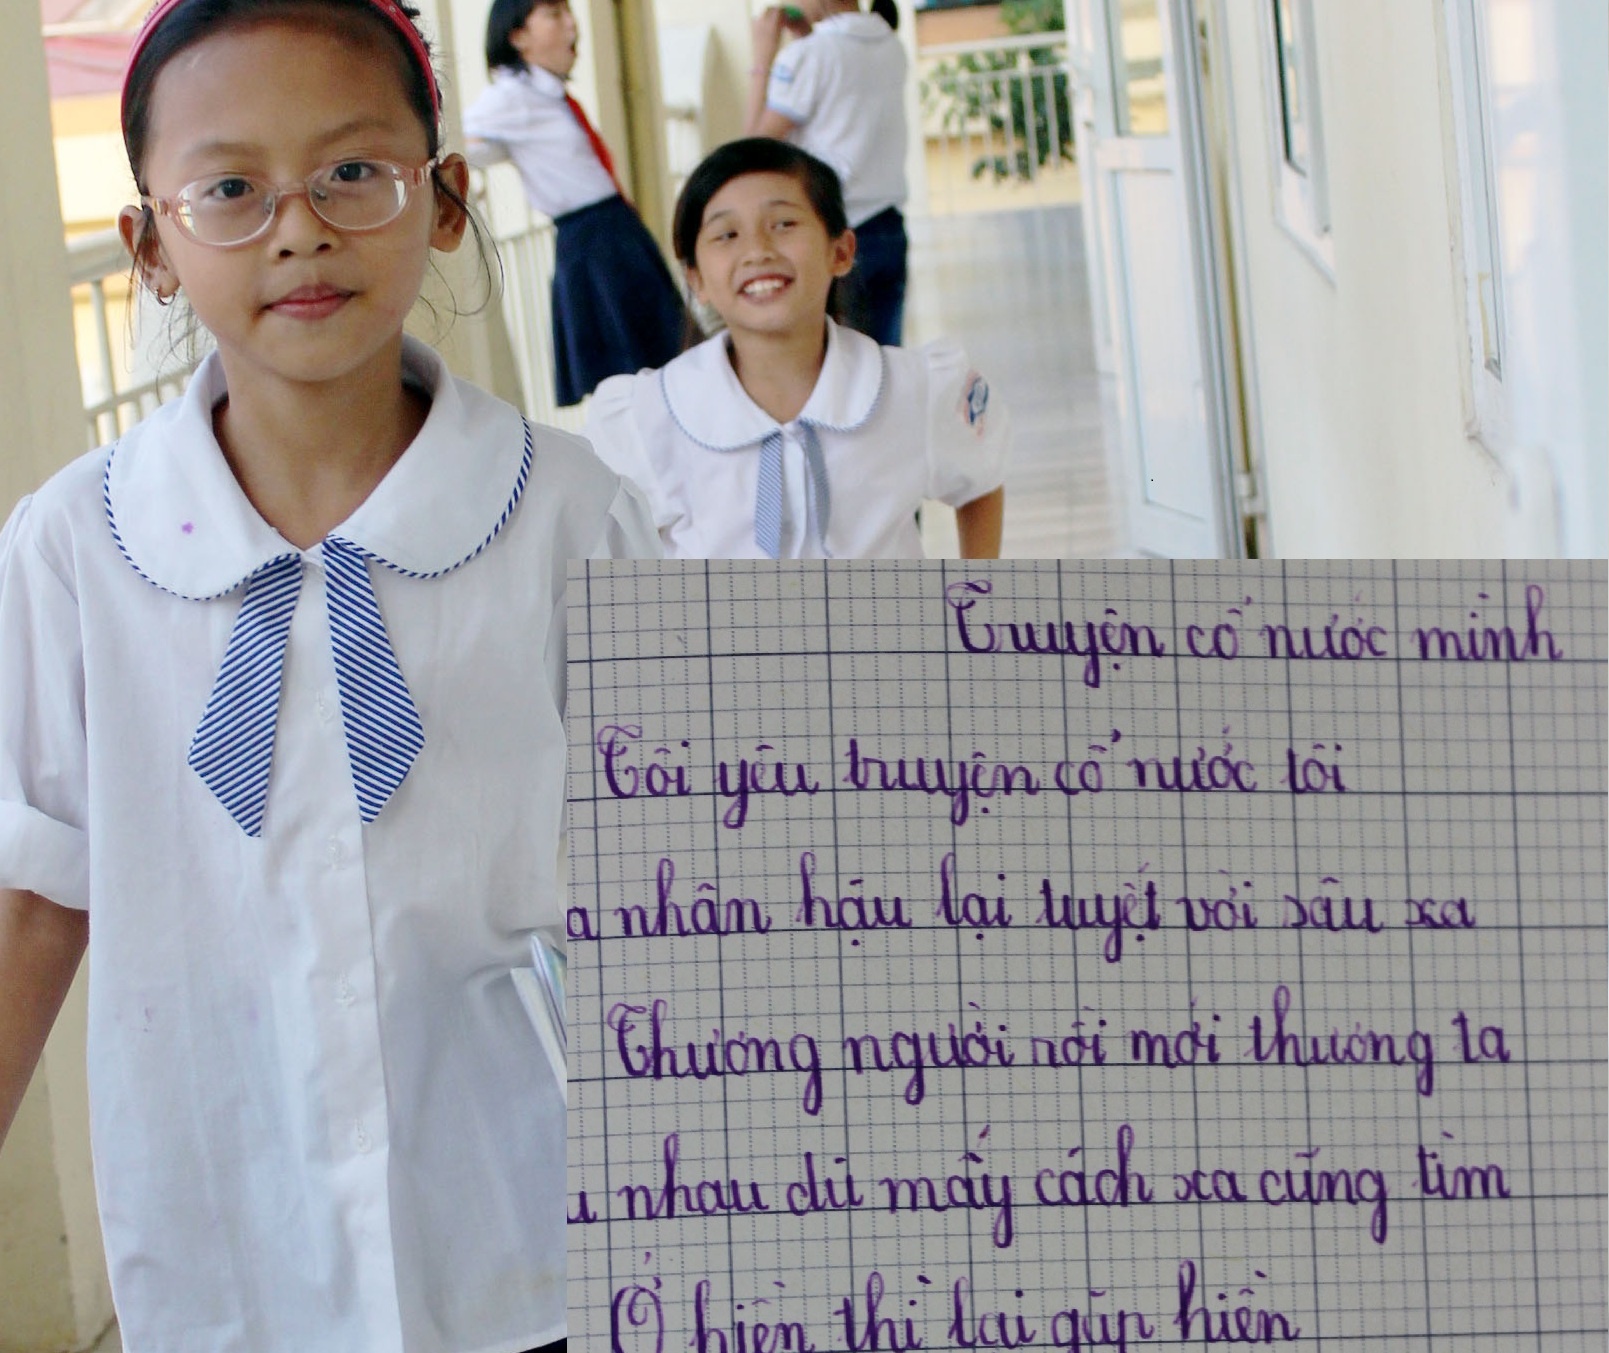 Truyện cổ nước mình
Tôi yêu truyện cổ nước tôi
nhân hậu lại tuyệt vời sâu xa
Thương người rồi mới thương ta
nhau dù mấy cách xa cũng tìm
Ở hiền thì lại gặp hiền